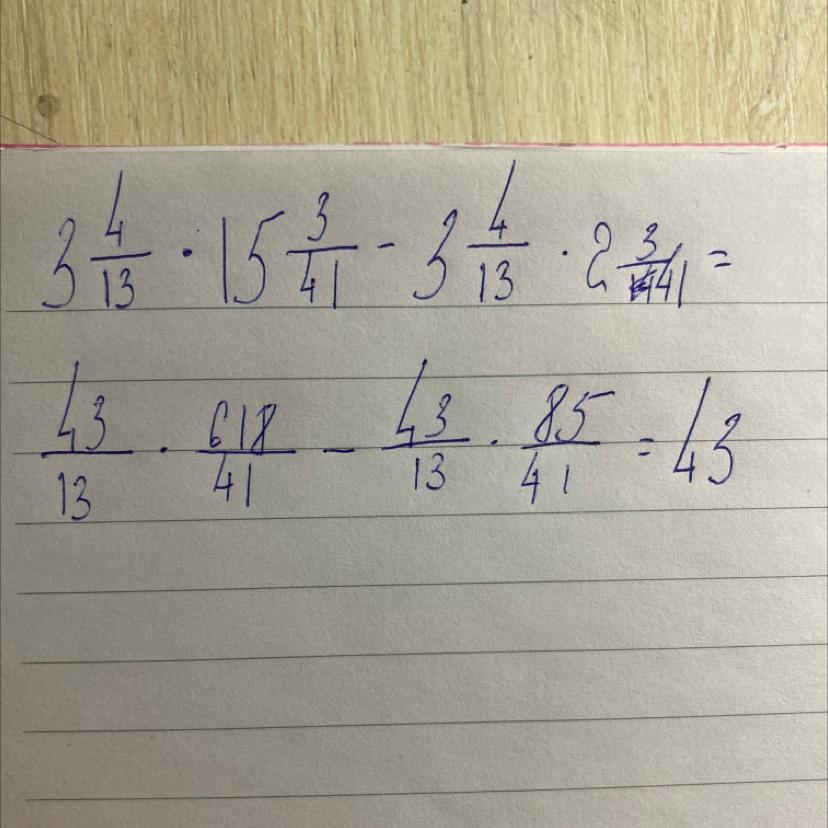 3 4/13 · 15 3/41 - 3 4/13 · 2 3/41 =
43/13 · 618/41 - 43/13 · 85/41 = 43